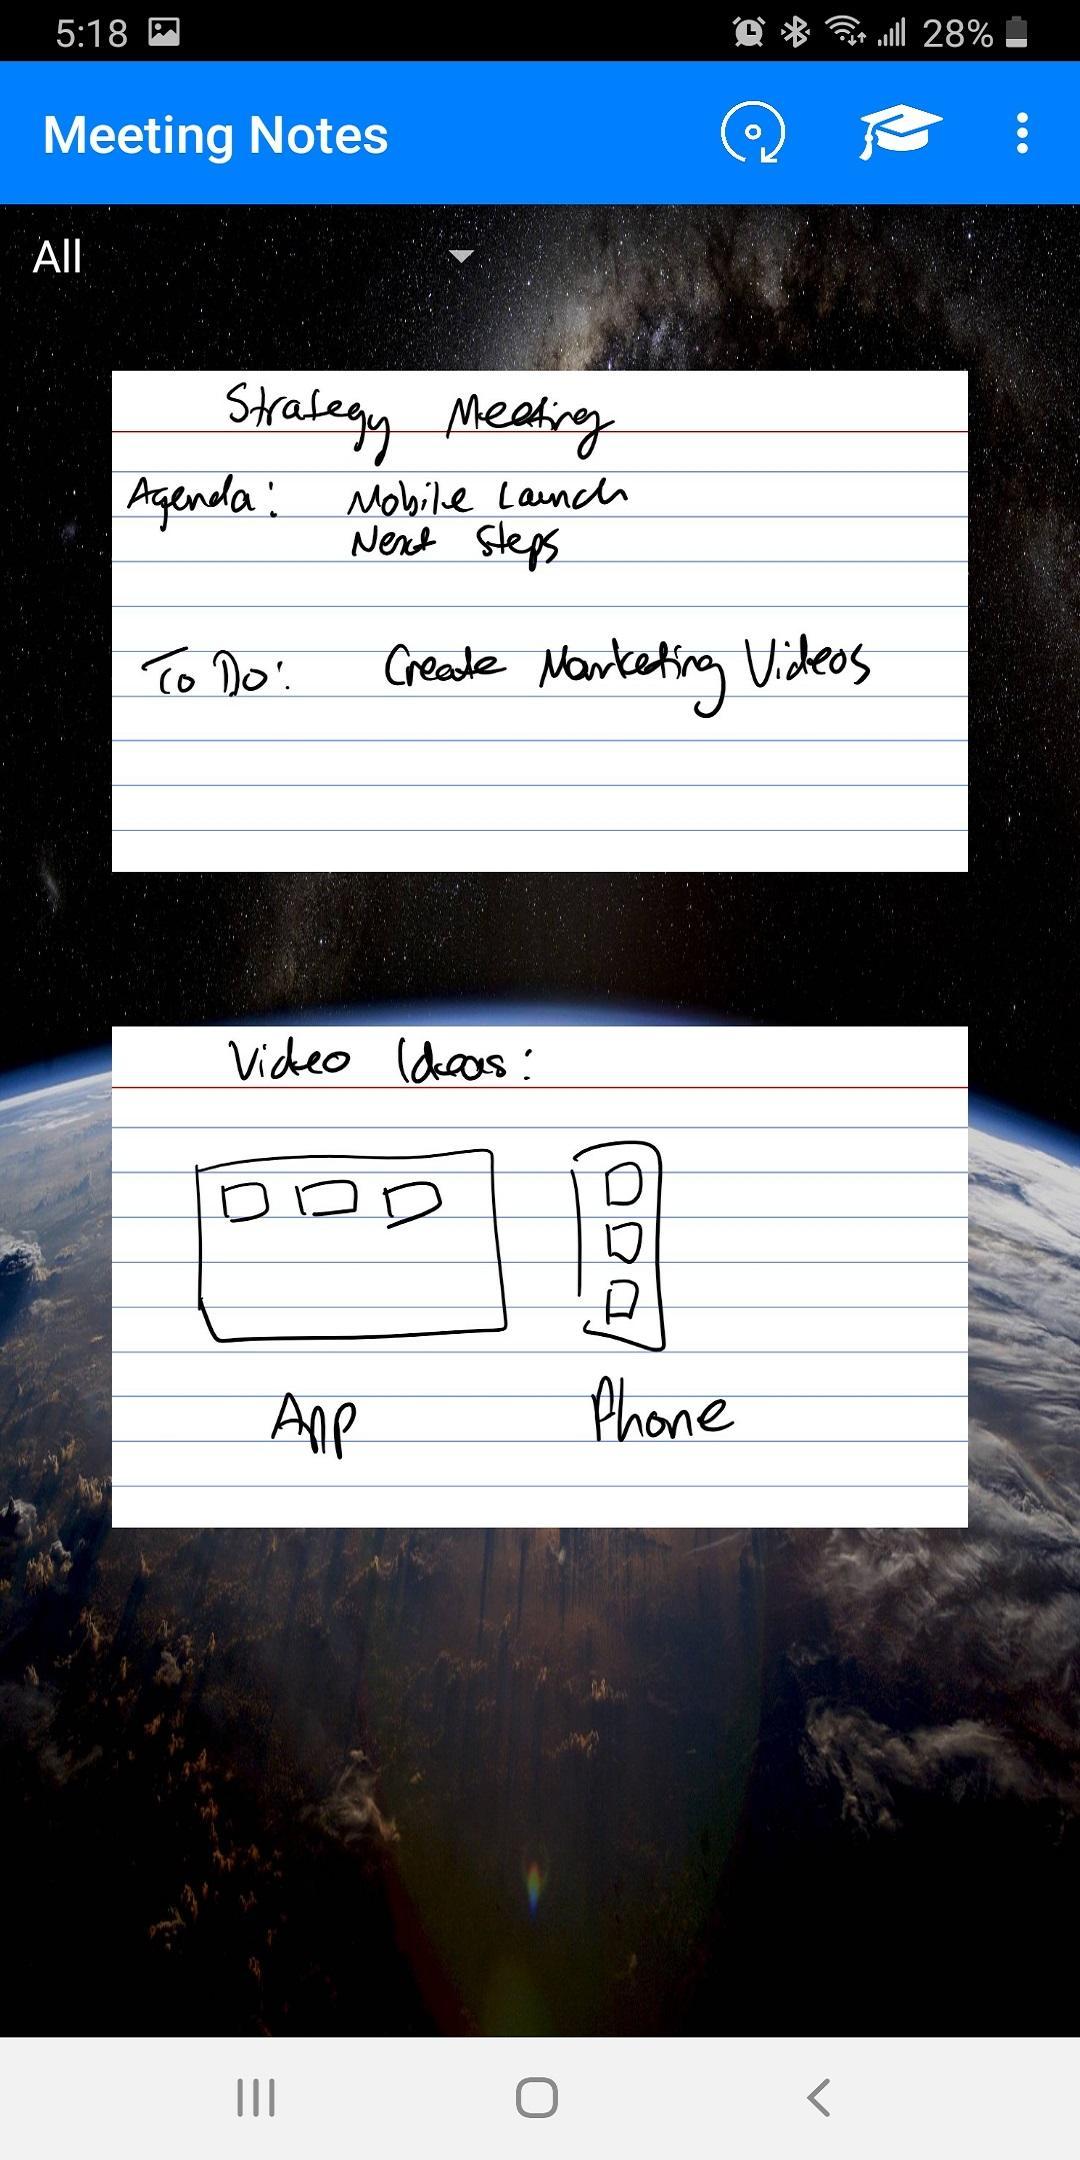 5:18 28%
Meeting Notes
All
Strategy Meeting
Agenda: Mobile Launch
Next Steps
To Do: Create Marketing Videos
Video Ideas:
App Phone